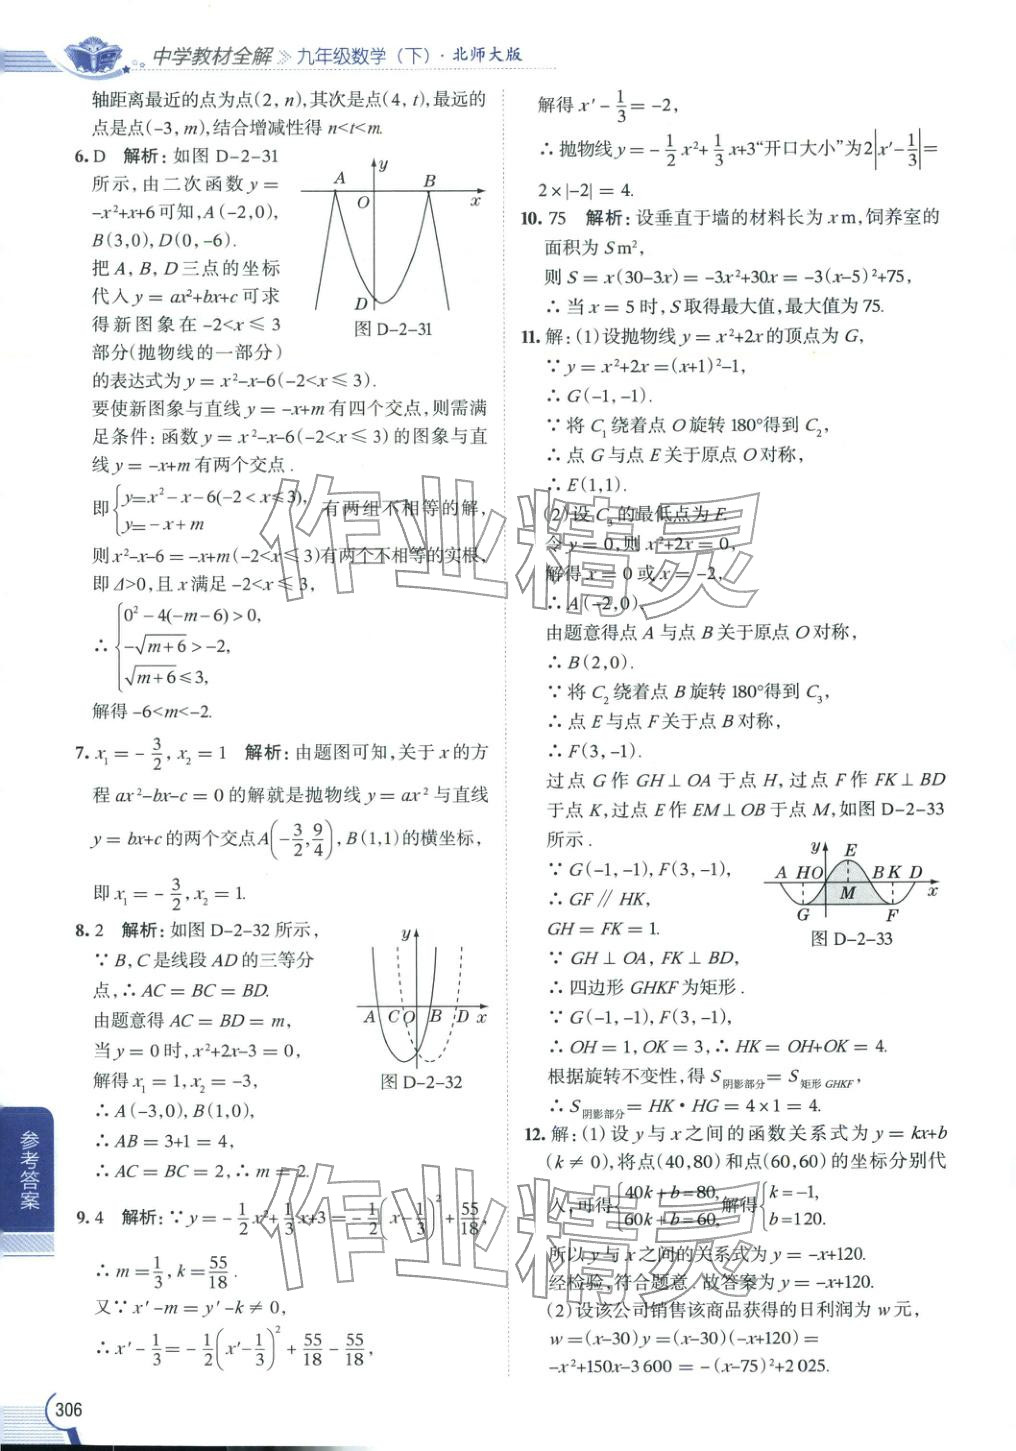 中学教材全解 九年级数学（下）·北师大版
轴距离最近的点为点(2, n),其次是点(4, t),最远的
点是点(-3, m),结合增减性得 n<t<m.
6. D 解析:如图 D-2-31
所示,由二次函数 y =
-x²+x+6可知,A(-2,0),
B(3,0),D(0,-6).
把 A, B, D三点的坐标
代入 y = ax²+bx+c 可求
得新图象在 -2<x ≤ 3
部分(抛物线的一部分)
A
y
B
O
x
D
图 D-2-31
的表达式为 y = x²-x-6(-2<x ≤ 3).
要使新图象与直线 y = -x+m 有四个交点,则需满
足条件:函数 y = x²-x-6(-2<x ≤ 3)的图象与直
线 y = -x+m 有两个交点.
即{y=x²-x-6(-2<x≤3), y=-x+m 有两组不相等的解,
则 x²-x-6 = -x+m(-2<x ≤ 3)有两个不相等的实根,
即 Δ>0,且 x 满足 -2<x ≤ 3,
∴ {0²-4(-m-6)>0,
-√(m+6)>-2,
√(m+6)≤3,
解得 -6<m<-2.
7. x₁ = -3/2, x₂ = 1 解析:由题图可知,关于 x 的方
程 ax²-bx-c = 0 的解就是抛物线 y = ax² 与直线
y = bx+c 的两个交点A(-3/2, 9/4), B(1,1)的横坐标,
即 x₁ = -3/2, x₂ = 1.
8. 2 解析:如图 D-2-32 所示,
∵ B, C是线段 AD的三等分
点,∴ AC = BC = BD.
由题意得 AC = BD = m,
当 y = 0时, x²+2x-3 = 0,
解得 x₁ = 1, x₂ = -3,
∴ A(-3,0), B(1,0),
∴ AB = 3+1 = 4,
∴ AC = BC = 2,∴ m = 2.
y
A C O B D x
图 D-2-32
9. 4 解析:∵ y = -1/2 x²+1/3 x+3 = -1/2(x-1/3)²+55/18,
∴ m = 1/3, k = 55/18.
又∵ x′-m = y′-k ≠ 0,
∴ x′-1/3 = -1/2(x′-1/3)²+55/18-55/18,
解得 x′-1/3 = -2,
∴ 抛物线 y = -1/2 x²+1/3 x+3“开口大小”为2|x′-1/3| =
2×|-2| = 4.
10. 75 解析:设垂直于墙的材料长为 x m,饲养室的
面积为 S m²,
则 S = x(30-3x) = -3x²+30x = -3(x-5)²+75,
∴ 当 x = 5 时,S取得最大值,最大值为 75.
11. 解:(1)设抛物线 y = x²+2x的顶点为 G,
∵ y = x²+2x = (x+1)²-1,
∴ G(-1,-1).
∵ 将 C₁ 绕着点 O旋转 180°得到 C₂,
∴ 点 G与点 E关于原点 O对称,
∴ E(1,1).
(2)设 C₃ 的最低点为 F.
令 y = 0,则 x²+2x = 0,
解得 x = 0 或 x = -2,
∴ A(-2,0).
由题意得点 A 与点 B 关于原点 O 对称,
∴ B(2,0).
∵ 将 C₂ 绕着点 B 旋转 180°得到 C₃,
∴ 点 E与点 F关于点 B对称,
∴ F(3,-1).
过点 G 作 GH⊥OA 于点 H,过点 F 作 FK⊥BD
于点 K,过点 E作 EM⊥OB于点 M,如图 D-2-33
所示.
∵ G(-1,-1), F(3,-1),
∴ GF // HK,
GH = FK = 1.
∵ GH⊥OA, FK⊥BD,
∴ 四边形 GHKF 为矩形.
y E
A H O B K D x
M
G F
图 D-2-33
∵ G(-1,-1), F(3,-1),
∴ OH = 1, OK = 3,∴ HK = OH+OK = 4.
根据旋转不变性,得 S阴影部分 = S矩形 GHKF,
∴ S阴影部分 = HK·HG = 4×1 = 4.
12. 解:(1)设 y 与 x 之间的函数关系式为 y = kx+b
(k ≠ 0),将点(40,80)和点(60,60)的坐标分别代
入,可得{40k+b=80, 60k+b=60, 解得{k=-1, b=120.
所以 y 与 x 之间的关系式为 y = -x+120.
经检验,符合题意.故答案为 y = -x+120.
(2)设该公司销售该商品获得的日利润为 w 元,
w = (x-30)y = (x-30)(-x+120) =
-x²+150x-3 600 = -(x-75)²+2 025.
参考答案
306
作业精灵
作业精灵